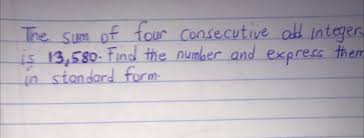 The sum of four consecutive odd integers
is 13,580. Find the number and express them
in standard form.